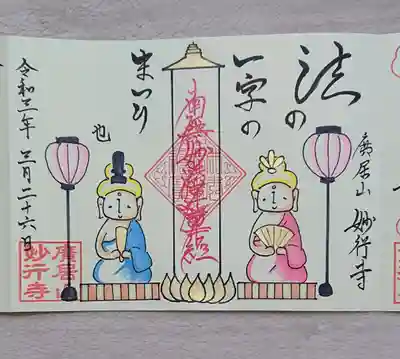 廣居山 妙行寺
法の
一字の
まいり
也
南無妙法蓮華経
令和三年 三月二十六日
廣居山
妙行寺